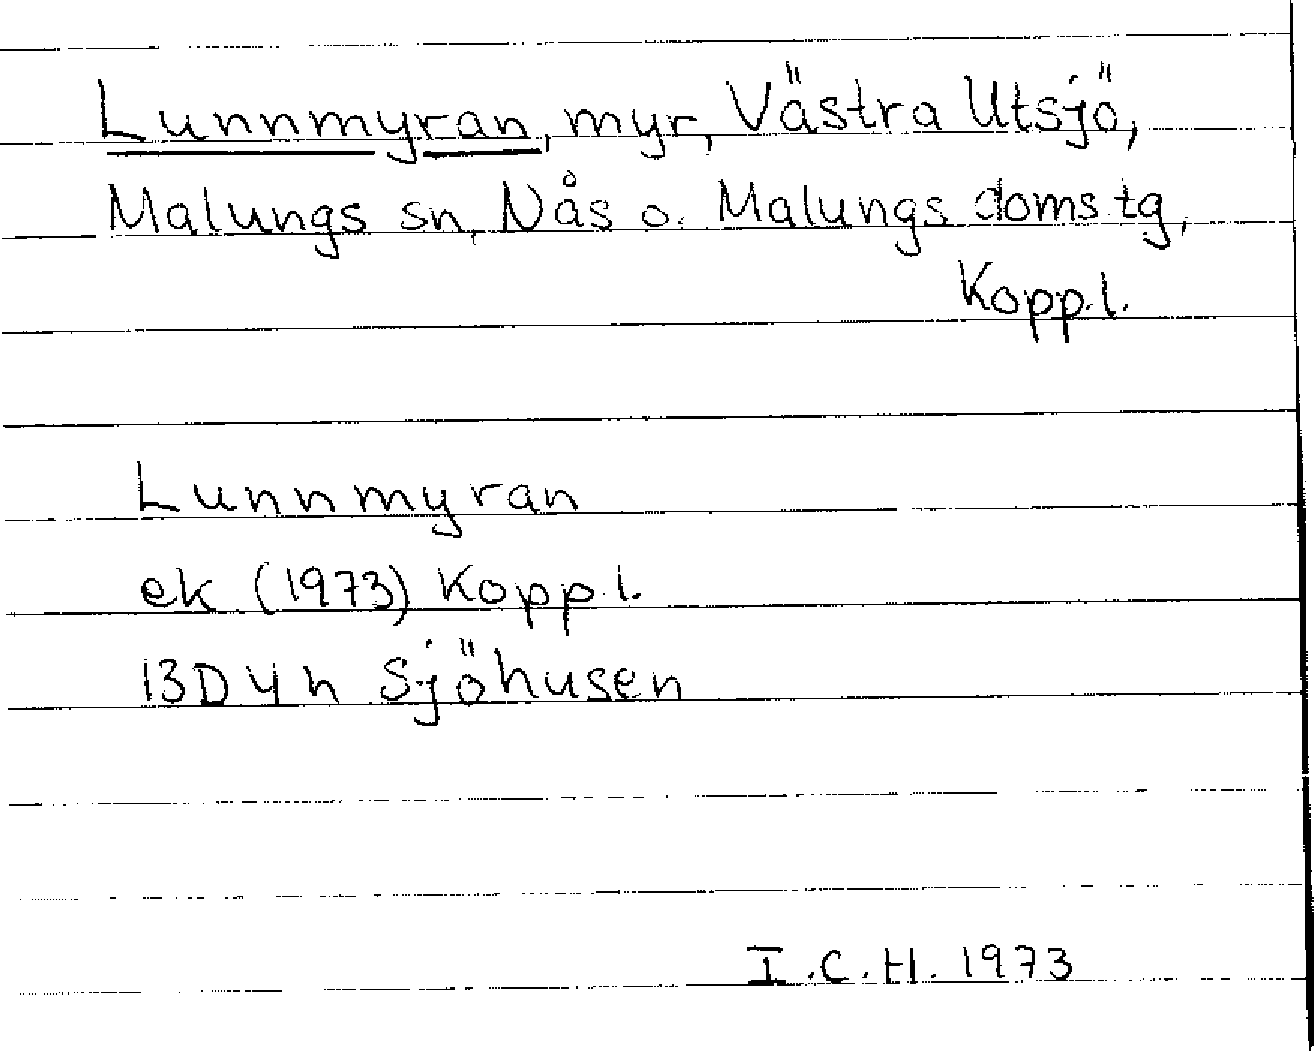 Lunnmyran, myr, Västra Utsjö,
Malungs sn, Nås o. Malungs domstg,
Kopp.l.
Lunnmyran
ek (1973) Kopp.l.
13D4h Sjöhusen
I.C.H. 1973